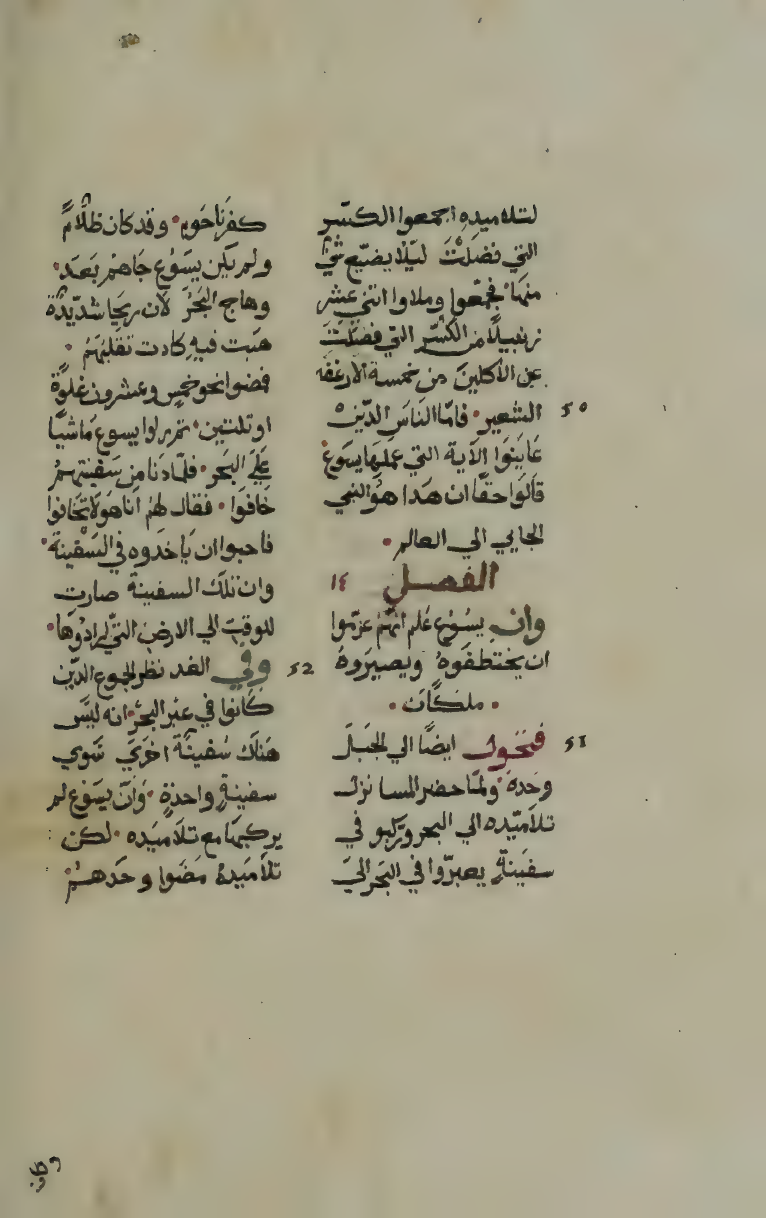 لتلاميده اجمعوا الكسر
التي فضلت ليلا يضيع شي
منها فجمعوا وملاوا اتني عشر
زنبيلا من الكسر التي فضلت
عن الاكلين من خمسة الارغفه
الشعير فاما الناس الدين
عاينوا الاية التي عملها يسوع
قالوا حقا ان هدا هو النبي
الجايي الي العالم
الفصل ١٤
وان يسوع علم انهم عزموا
ان يختطفوه ويصيروه
ملكا
فتحول ايضا الي الجبل
وحده ولما حضر المسا نزل
تلاميده الي البحر وركبو في
سفينة يعبروا في البحر الي
كفرناحوم وقد كان ظلام
ولم يكن يسوع جاهم بعد
وهاج البحر لان ريحا شديدة
هبت فيه كادت تقلبهم
فمضوا نحو خمس وعشرون غلوة
او تلتين تم راوا يسوع ماشيا
علي البحر فلما دنا من سفينتهم
خافوا فقال لهم انا هو لا تخافوا
فاحبوا ان ياخدوه في السفينة
وان تلك السفينة صارت
للوقت الي الارض التي ارادوها
وفي الغد نظر الجموع الدين
كانوا في عبر البحر انه ليس
هناك سفينة اخري سوي
سفينة واحدة وان يسوع لم
يركبها مع تلاميده لكن
تلاميده مضوا وحدهم